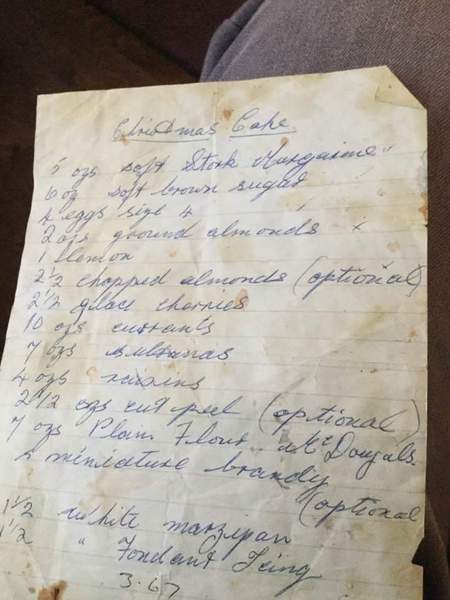 Christmas Cake
5 ozs soft Stork Margarine"
6 oz soft brown sugar
4 eggs size 4
2 ozs ground almonds x
1 lemon
2 1/2 chopped almonds (optional)
2 1/2 glace cherries
10 ozs currants
7 ozs sultanas
4 ozs raisins
2 1/2 ozs cut peel (optional)
7 ozs Plain Flour McDougals
miniature brandy
(optional
1 1/2 white marzipan
1 1/2 " Fondant Icing
3.67